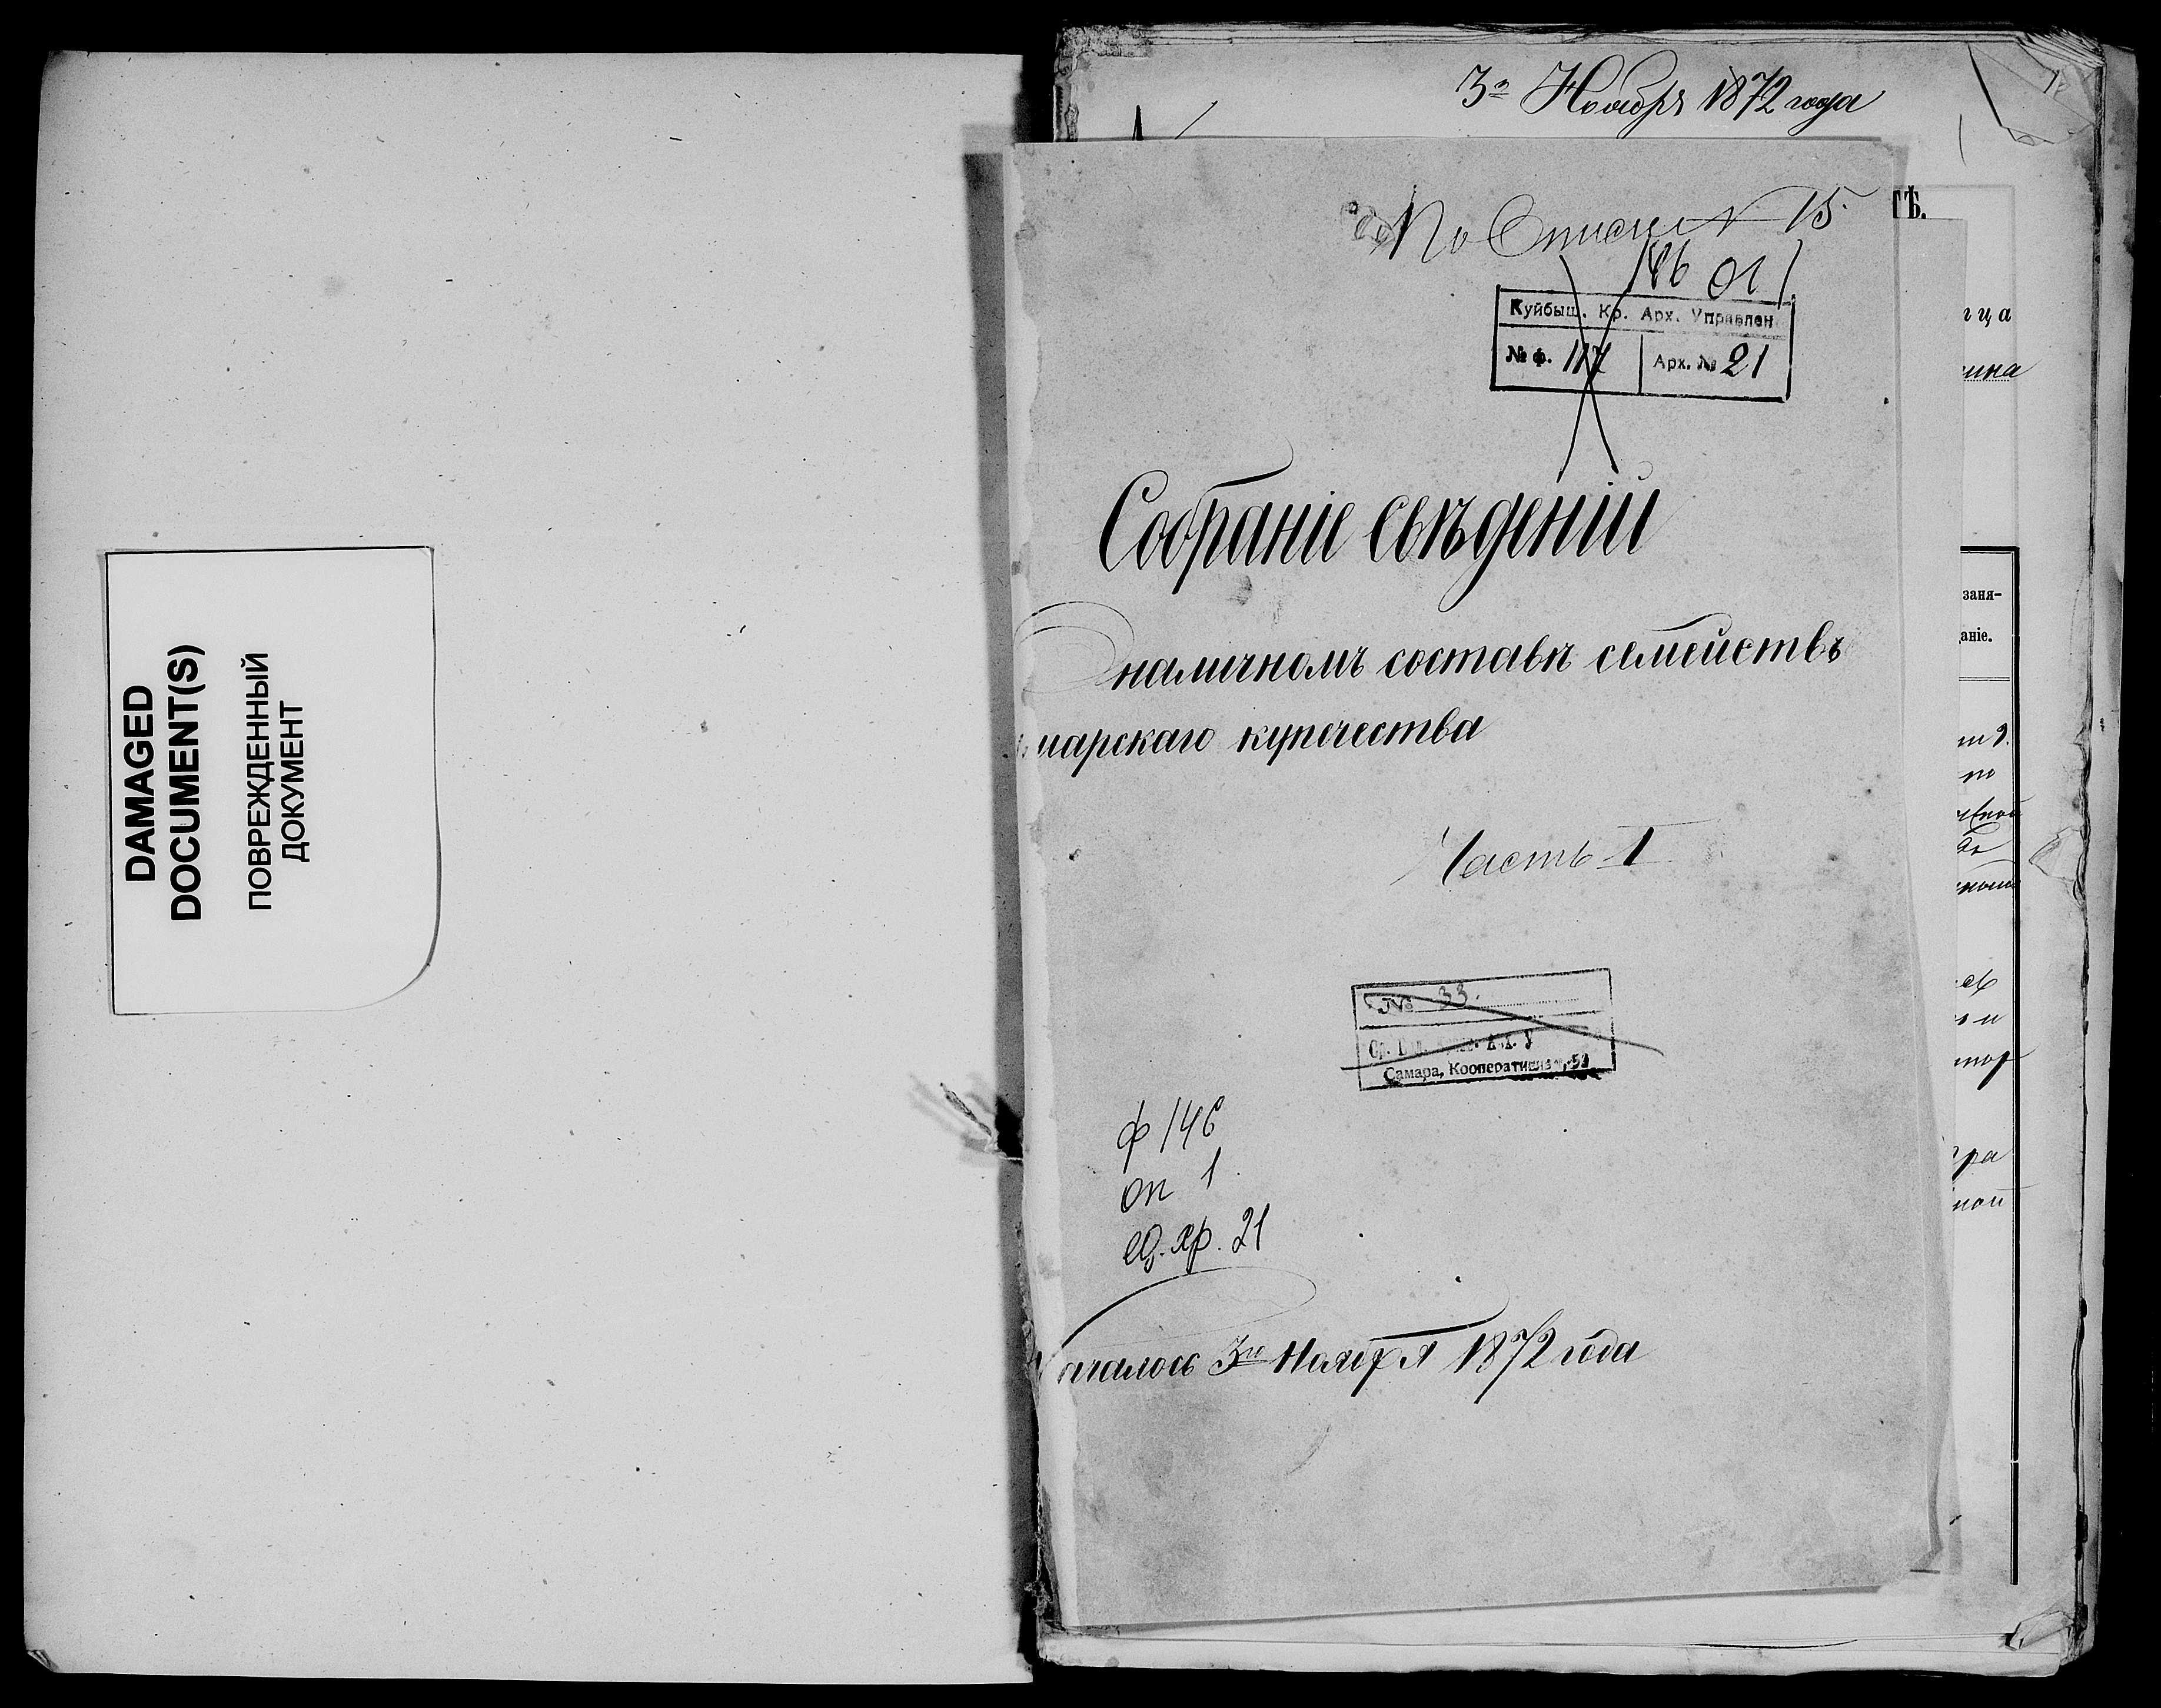 DAMAGED
DOCUMENT(S)
ПОВРЕЖДЕННЫЙ
ДОКУМЕНТ
3го Ноября 1872 года
По Описи № 15
Куйбыш. Кр. Арх. Управлен
№ ф. 117 Арх. № 21
Собраніе свѣденій
О наличномъ составѣ семействъ
марскаго купечества
Часть I
№ 33.
Самара, Кооперативная, 52
ф 146
оп 1
ед. хр. 21
Началось 3го Ноября 1872 года
ТѢ.
ица
ина
заня-
аніе.